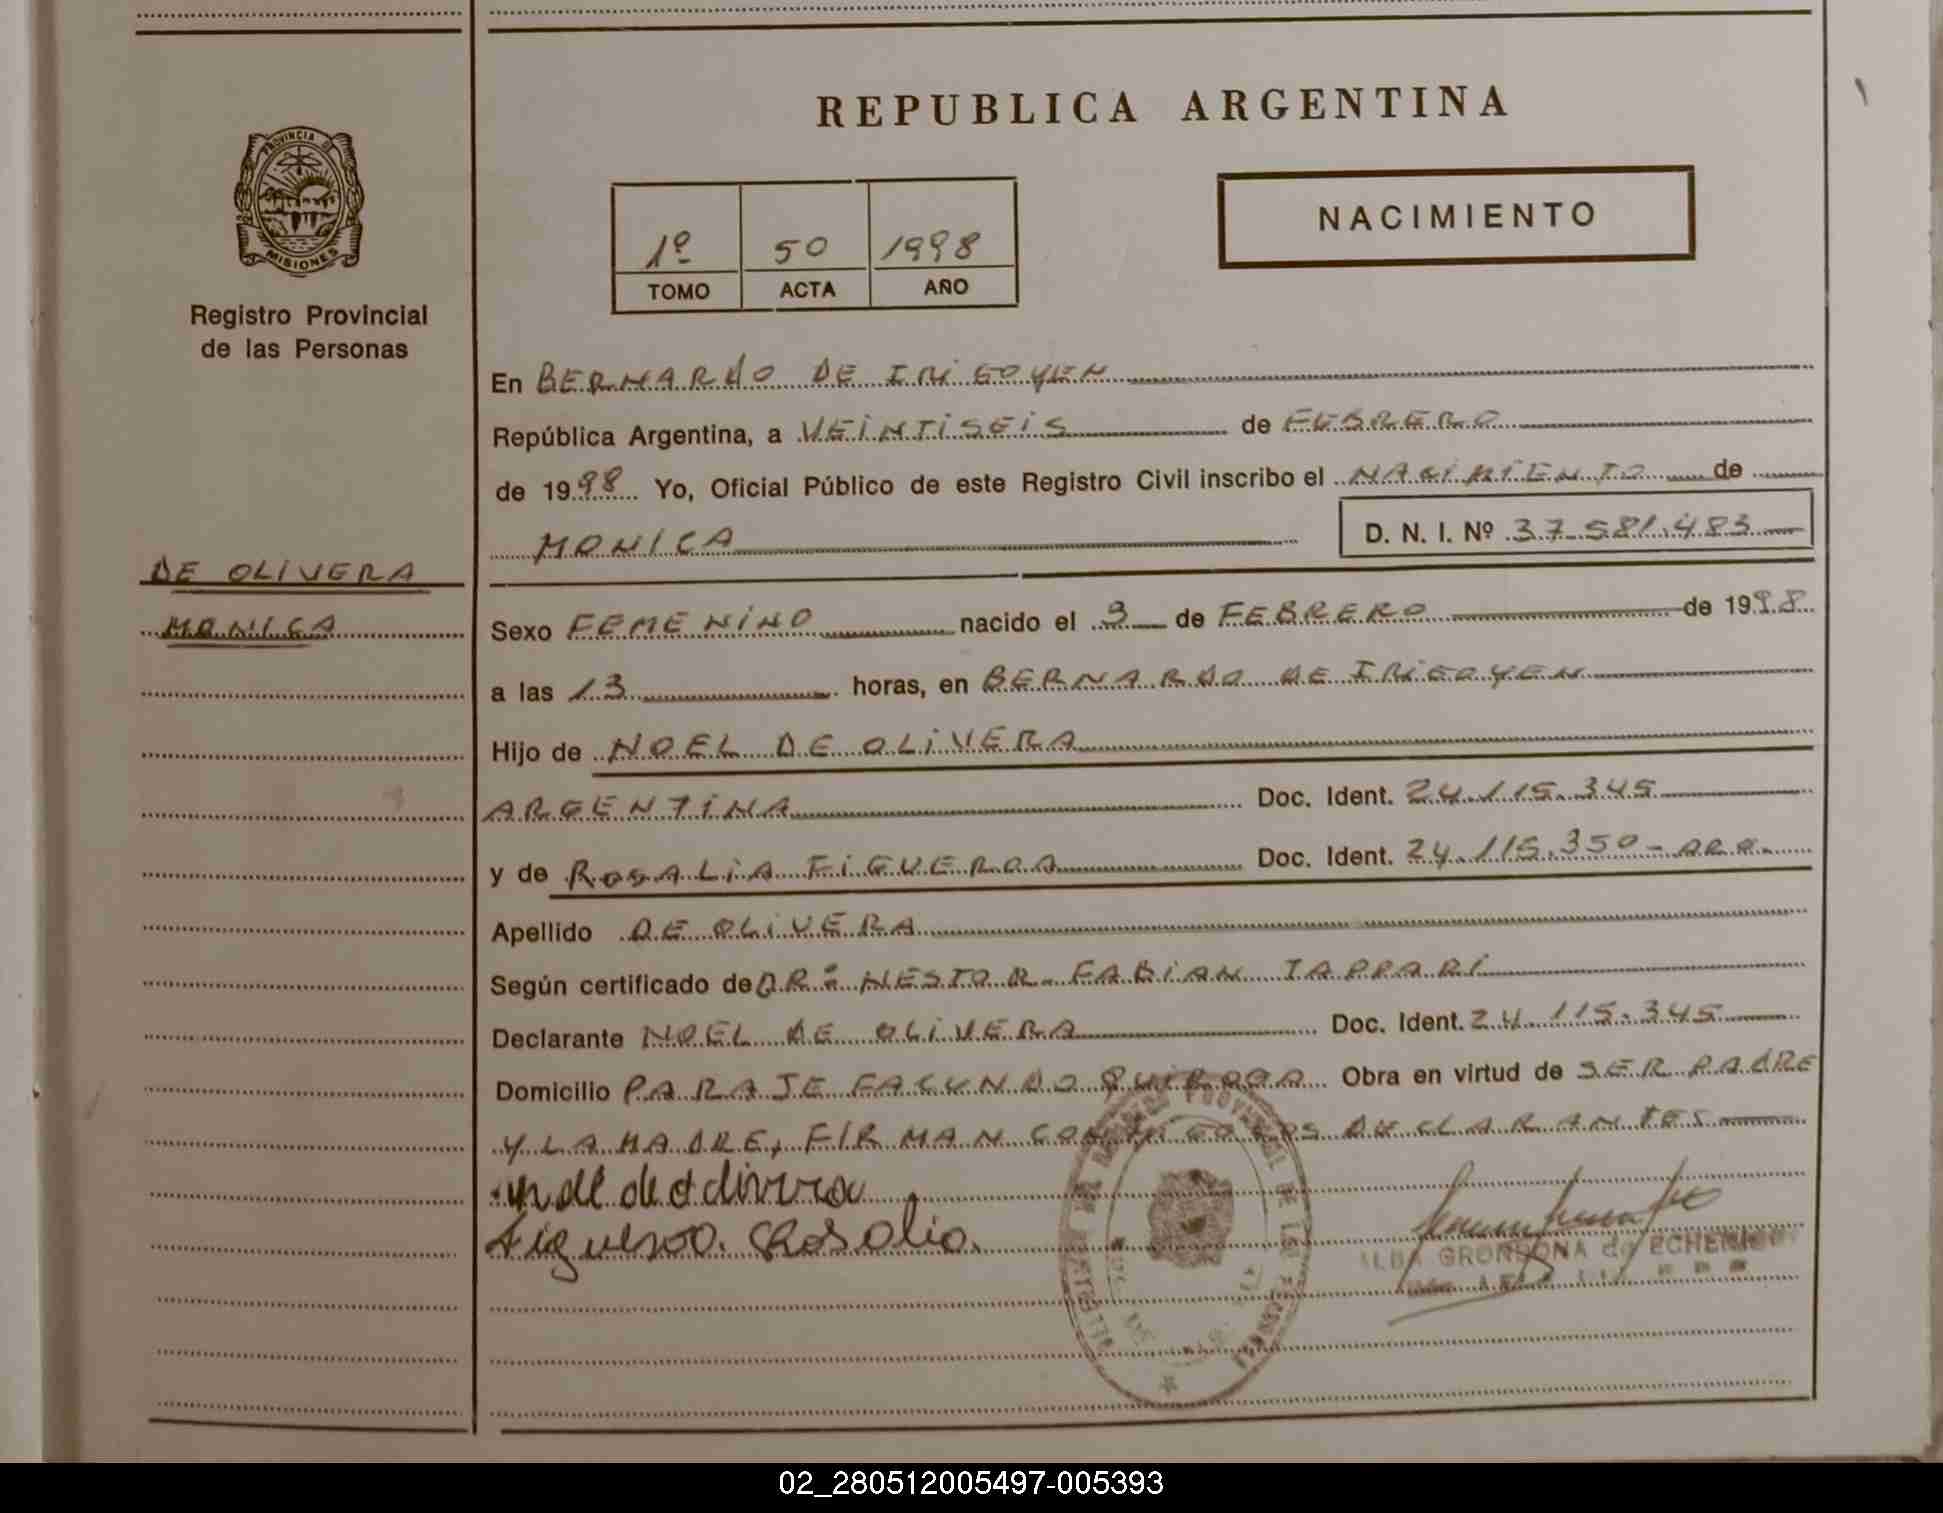 REPUBLICA ARGENTINA
PROVINCIA DE
MISIONES
Registro Provincial
de las Personas
NACIMIENTO
1º 50 1998
TOMO ACTA AÑO
En BERNARDO DE IRIGOYEN
República Argentina, a VEINTISEIS de FEBRERO
de 1998 Yo, Oficial Público de este Registro Civil inscribo el NACIMIENTO de
MONICA D. N. I. Nº 37.581.483
DE OLIVERA
MONICA
Sexo FEMENINO nacido el 9 de FEBRERO de 1998
a las 13 horas, en BERNARDO DE IRIGOYEN
Hijo de NOEL DE OLIVERA
ARGENTINA Doc. Ident. 24.115.345
y de ROSALIA FIGUEROA Doc. Ident. 24.115.350 - ARG.
Apellido DE OLIVERA
Según certificado de DR: NESTOR FABIAN TAPPARI
Declarante NOEL DE OLIVERA Doc. Ident. 24.115.345
Domicilio PARAJE FACUNDO QUIROGA Obra en virtud de SER PADRE
Y LA MADRE, FIRMAN CONMIGO LOS DECLARANTES
noel de olivera
figueroa. Rosalia.
GRONDONA de ECHE
02_280512005497-005393